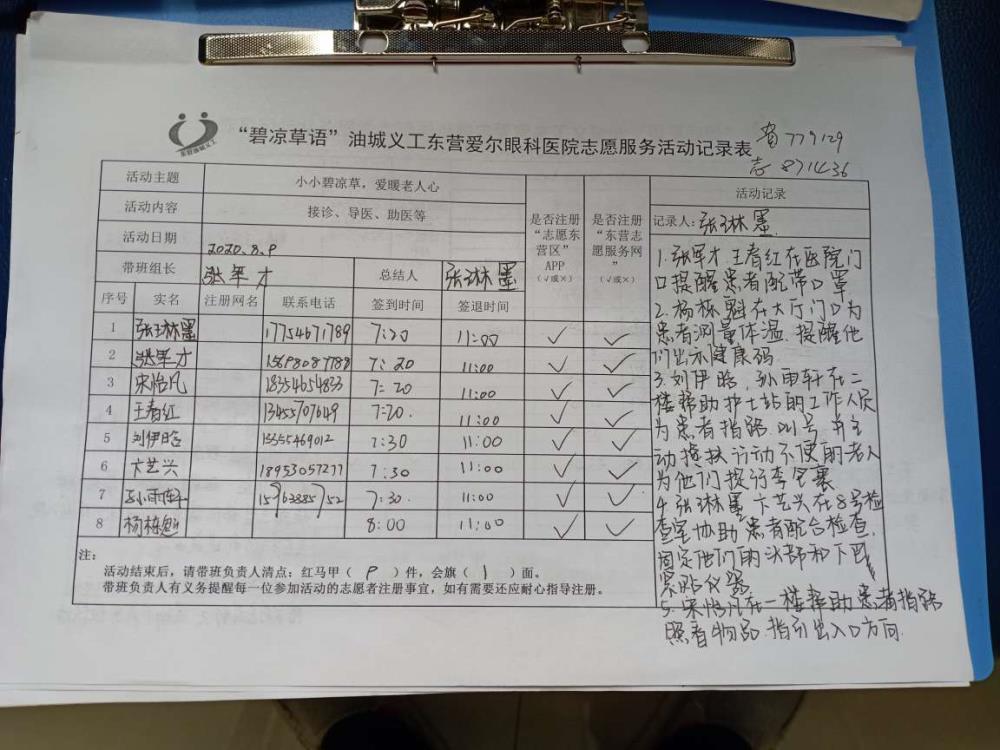 “碧凉草语”油城义工东营爱尔眼科医院志愿服务活动记录表
779129
志 8711436
活动主题 小小碧凉草，爱暖老人心
活动内容 接诊、导医、助医等
活动日期 2020.8.9
带班组长 张军才 总结人 张琳墨
是否注册“志愿东营区”APP（√或×）
是否注册“东营志愿服务网”（√或×）
序号 实名 注册网名 联系电话 签到时间 签退时间
1 张琳墨 17754671789 7:30 11:00 ✓ ✓
2 张军才 15698087788 7:20 11:00 ✓ ✓
3 宋怡凡 18354654833 7:20 11:00 ✓ ✓
4 王春红 13455707649 7:20 11:00 ✓ ✓
5 刘伊晗 15555469012 7:30 11:00 ✓ ✓
6 卞艺兴 18953057277 7:30 11:00 ✓ ✓
7 孙雨轩 15963885752 7:30 11:00 ✓ ✓
8 杨栋魁 8:00 11:00 ✓ ✓
注：
活动结束后，请带班负责人清点：红马甲（ 9 ）件，会旗（ 1 ）面。
带班负责人有义务提醒每一位参加活动的志愿者注册事宜，如有需要还应耐心指导注册。
活动记录
记录人：张琳墨
1.张军才 王春红在医院门
口提醒患者配带口罩
2.杨栋魁在大厅门口为
患者测量体温.提醒他
们出示健康码.
3.刘伊晗,孙雨轩在二
楼帮助护士站的工作人员
为患者指路.叫号.并主
动搀扶行动不便的老人
为他们提行李包裹
4.张琳墨 卞艺兴在8号检
查室协助患者配合检查.
固定他们的头部和下巴
紧贴仪器
5.宋怡凡在一楼帮助患者指路
照看物品.指引出入口方向.